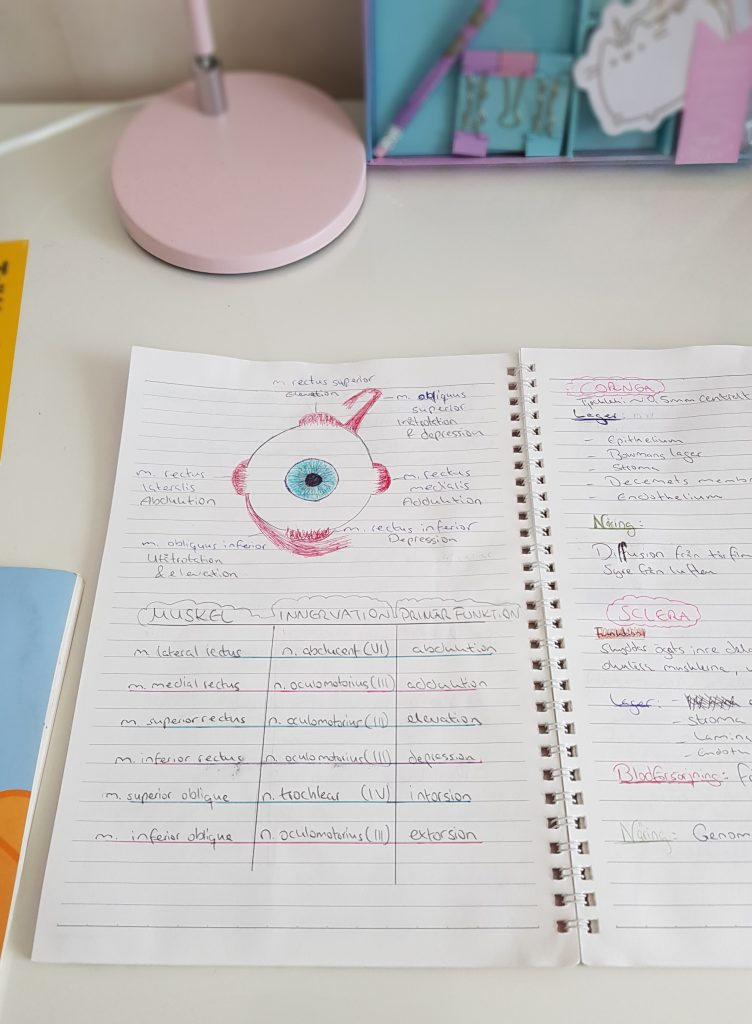 m. rectus superior
elevation
m. obliquus
superior
inåtrotation
& depression
m. rectus
lateralis
Abduktion
m. rectus
medialis
Adduktion
m. rectus inferior
Depression
m. obliquus inferior
Utåtrotation
& elevation
MUSKEL INNERVATION PRIMÄR FUNKTION
m. lateral rectus n. abducent (VI) abduktion
m. medial rectus n. oculomotorius (III) adduktion
m. superior rectus n. oculomotorius (III) elevation
m. inferior rectus n. oculomotorius (III) depression
m. superior oblique n. trochlear (IV) intorsion
m. inferior oblique n. oculomotorius (III) extorsion
Tjocklek: ~0,5mm centralt
Lager:
- Epithelium
- Bowmans lager
- Stroma
- Decemets
- Endothelium
Näring:
Diffusion från
Syre från luften
SCLERA
Funktion
Skyddar ögats inre
Lager:
- stroma
- Lamina
Blodförsörjning:
Näring: Genom